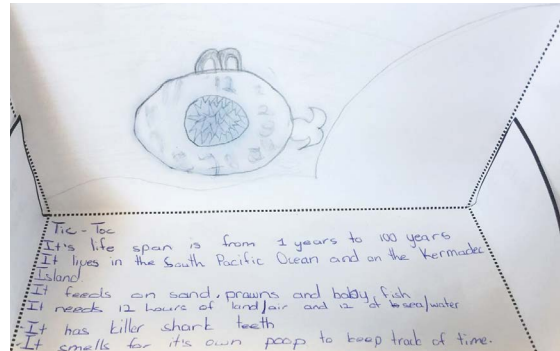 12
Tic - Toc
It's life span is from 1 years to 100 years
It lives in the South Pacific Ocean and on the Kermadec
Island
It feeds on sand, prawns and baby fish
It needs 12 hours of land/air and 12 of sea/water
-It has killer shark teeth
-It smells for it's own poop to keep track of time.